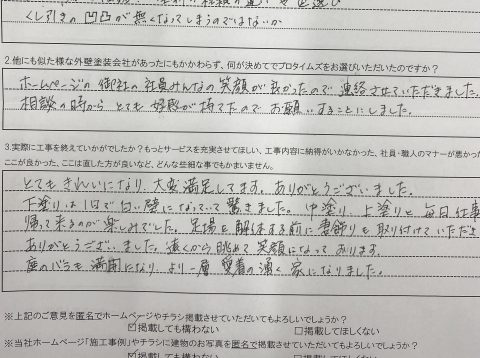 くし引きの凹凸が無くなってしまうのではないか
2.他にも似た様な外壁塗装会社があったにもかかわらず、何が決めてでプロタイムズをお選びいただいたのですか?
ホームページの御社の社員みんなの笑顔が良かったので連絡させていただきました。
相談の時から とても 好感が持てたので お願いすることにしました。
3.実際に工事を終えていかがでしたか?もっとサービスを充実させてほしい、工事内容に納得がいかなかった、社員・職人のマナーが悪かっ
ここが良かった、ここは直した方が良いなど、どんな些細な事でもかまいません。
とても きれいになり、大変満足してます。ありがとうございました。
下塗りは1日で白い壁になっていて驚きました。中塗り 上塗りと 毎日仕事
帰って来るのが楽しみでした。足場を解体する前に 雪飾りも取り付けていただき
ありがとうございました。遠くから眺めて笑顔になっております。
庭のバラも満開になり より一層 愛着の湧く 家になりました。
※上記のご意見を匿名でホームページやチラシ掲載させていただいてもよろしいでしょうか?
☑掲載しても構わない □掲載してほしくない
※当社ホームページ「施工事例」やチラシに建物のお写真を匿名で掲載させていただいてもよろしいでしょうか?